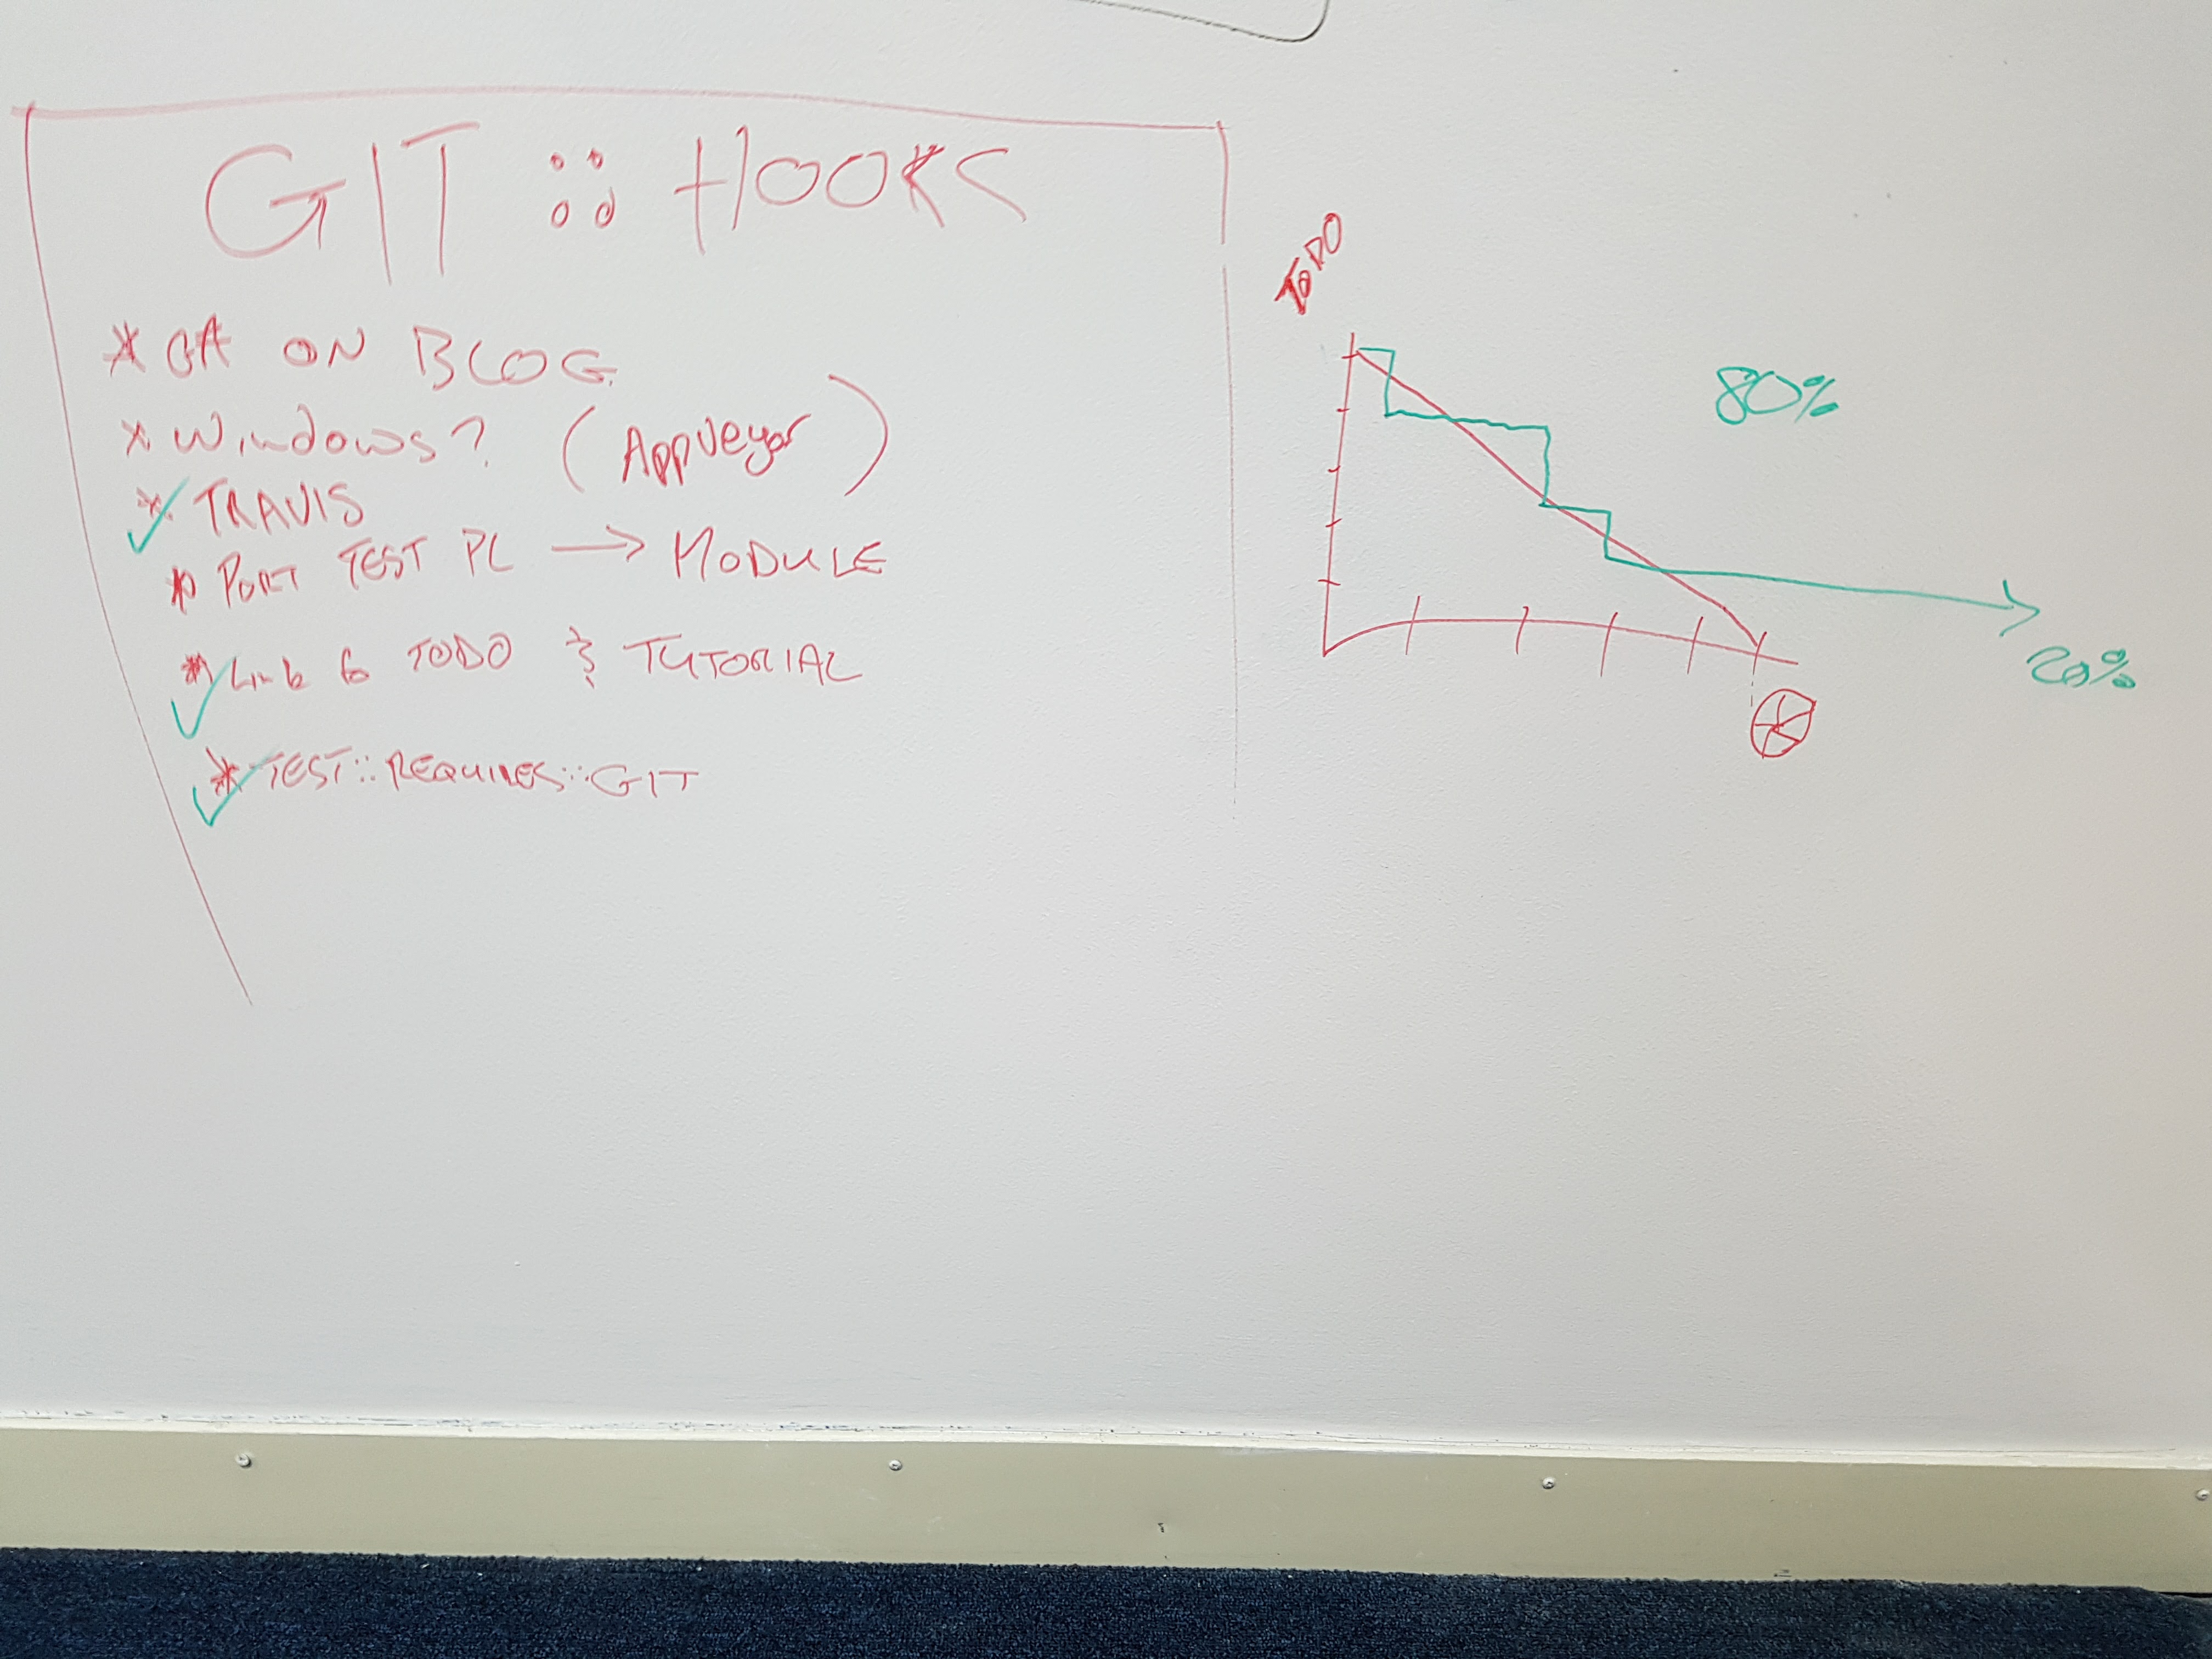 GIT :: HOOKS
* GA ON BLOG
* Windows? (AppVeyor)
* TRAVIS
* PORT TEST PL → MODULE
* Link to TODO & TUTORIAL
* TEST::REQUIRES::GIT
TODO
80%
20%